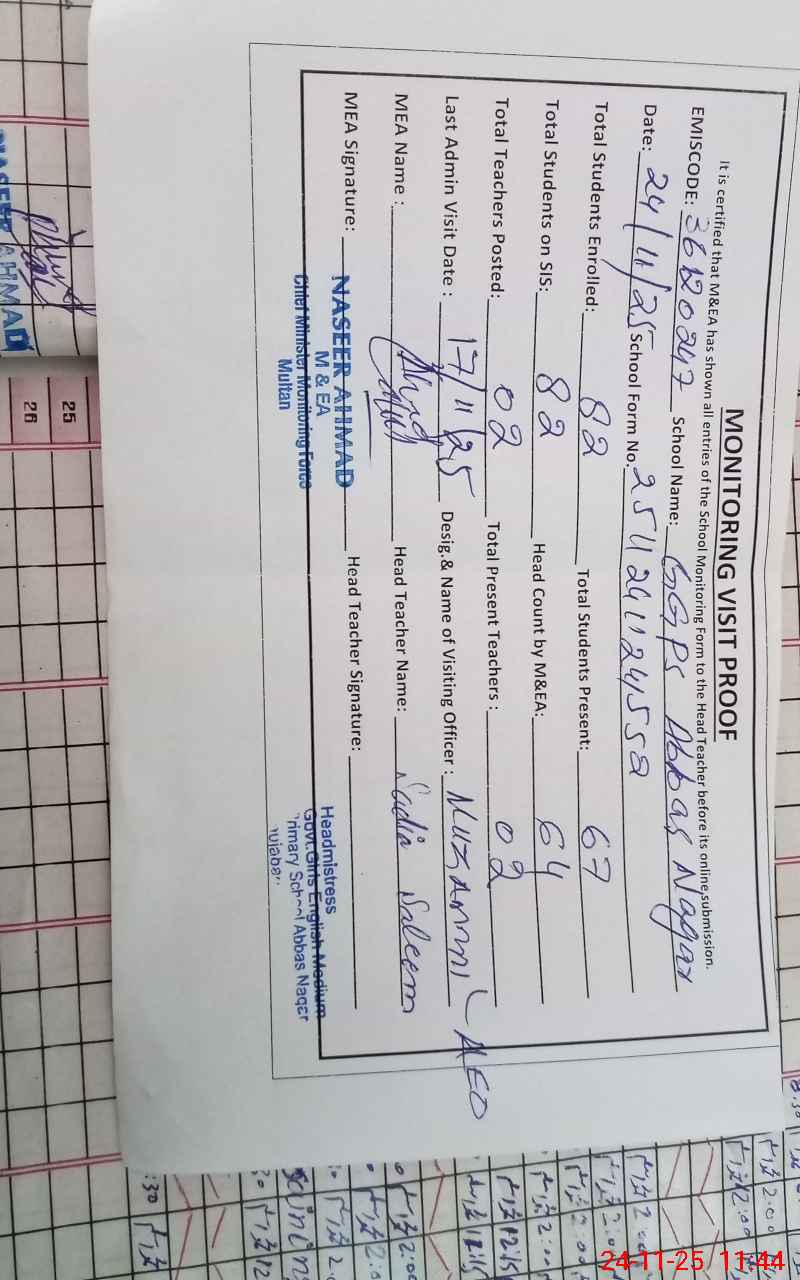 MONITORING VISIT PROOF
It is certified that M&EA has shown all entries of the School Monitoring Form to the Head Teacher before its online submission.
EMISCODE: 36120247 School Name: GGPS Abbas Nagar
Date: 24/11/25 School Form No. 2511241124552
Total Students Enrolled: 82 Total Students Present: 67
Total Students on SIS: 82 Head Count by M&EA: 64
Total Teachers Posted: 02 Total Present Teachers : 02
Last Admin Visit Date : 17/11/25 Desig.& Name of Visiting Officer : Muzammil AEO
MEA Name : Head Teacher Name: Nadia Saleem
MEA Signature: Head Teacher Signature:
NASEER AHMAD
M & EA
Chief Minister Monitoring Force
Multan
Headmistress
Govt.Girls English Medium
Primary School Abbas Nager
NASEER AHMAD
25
26
24-11-25 11:44